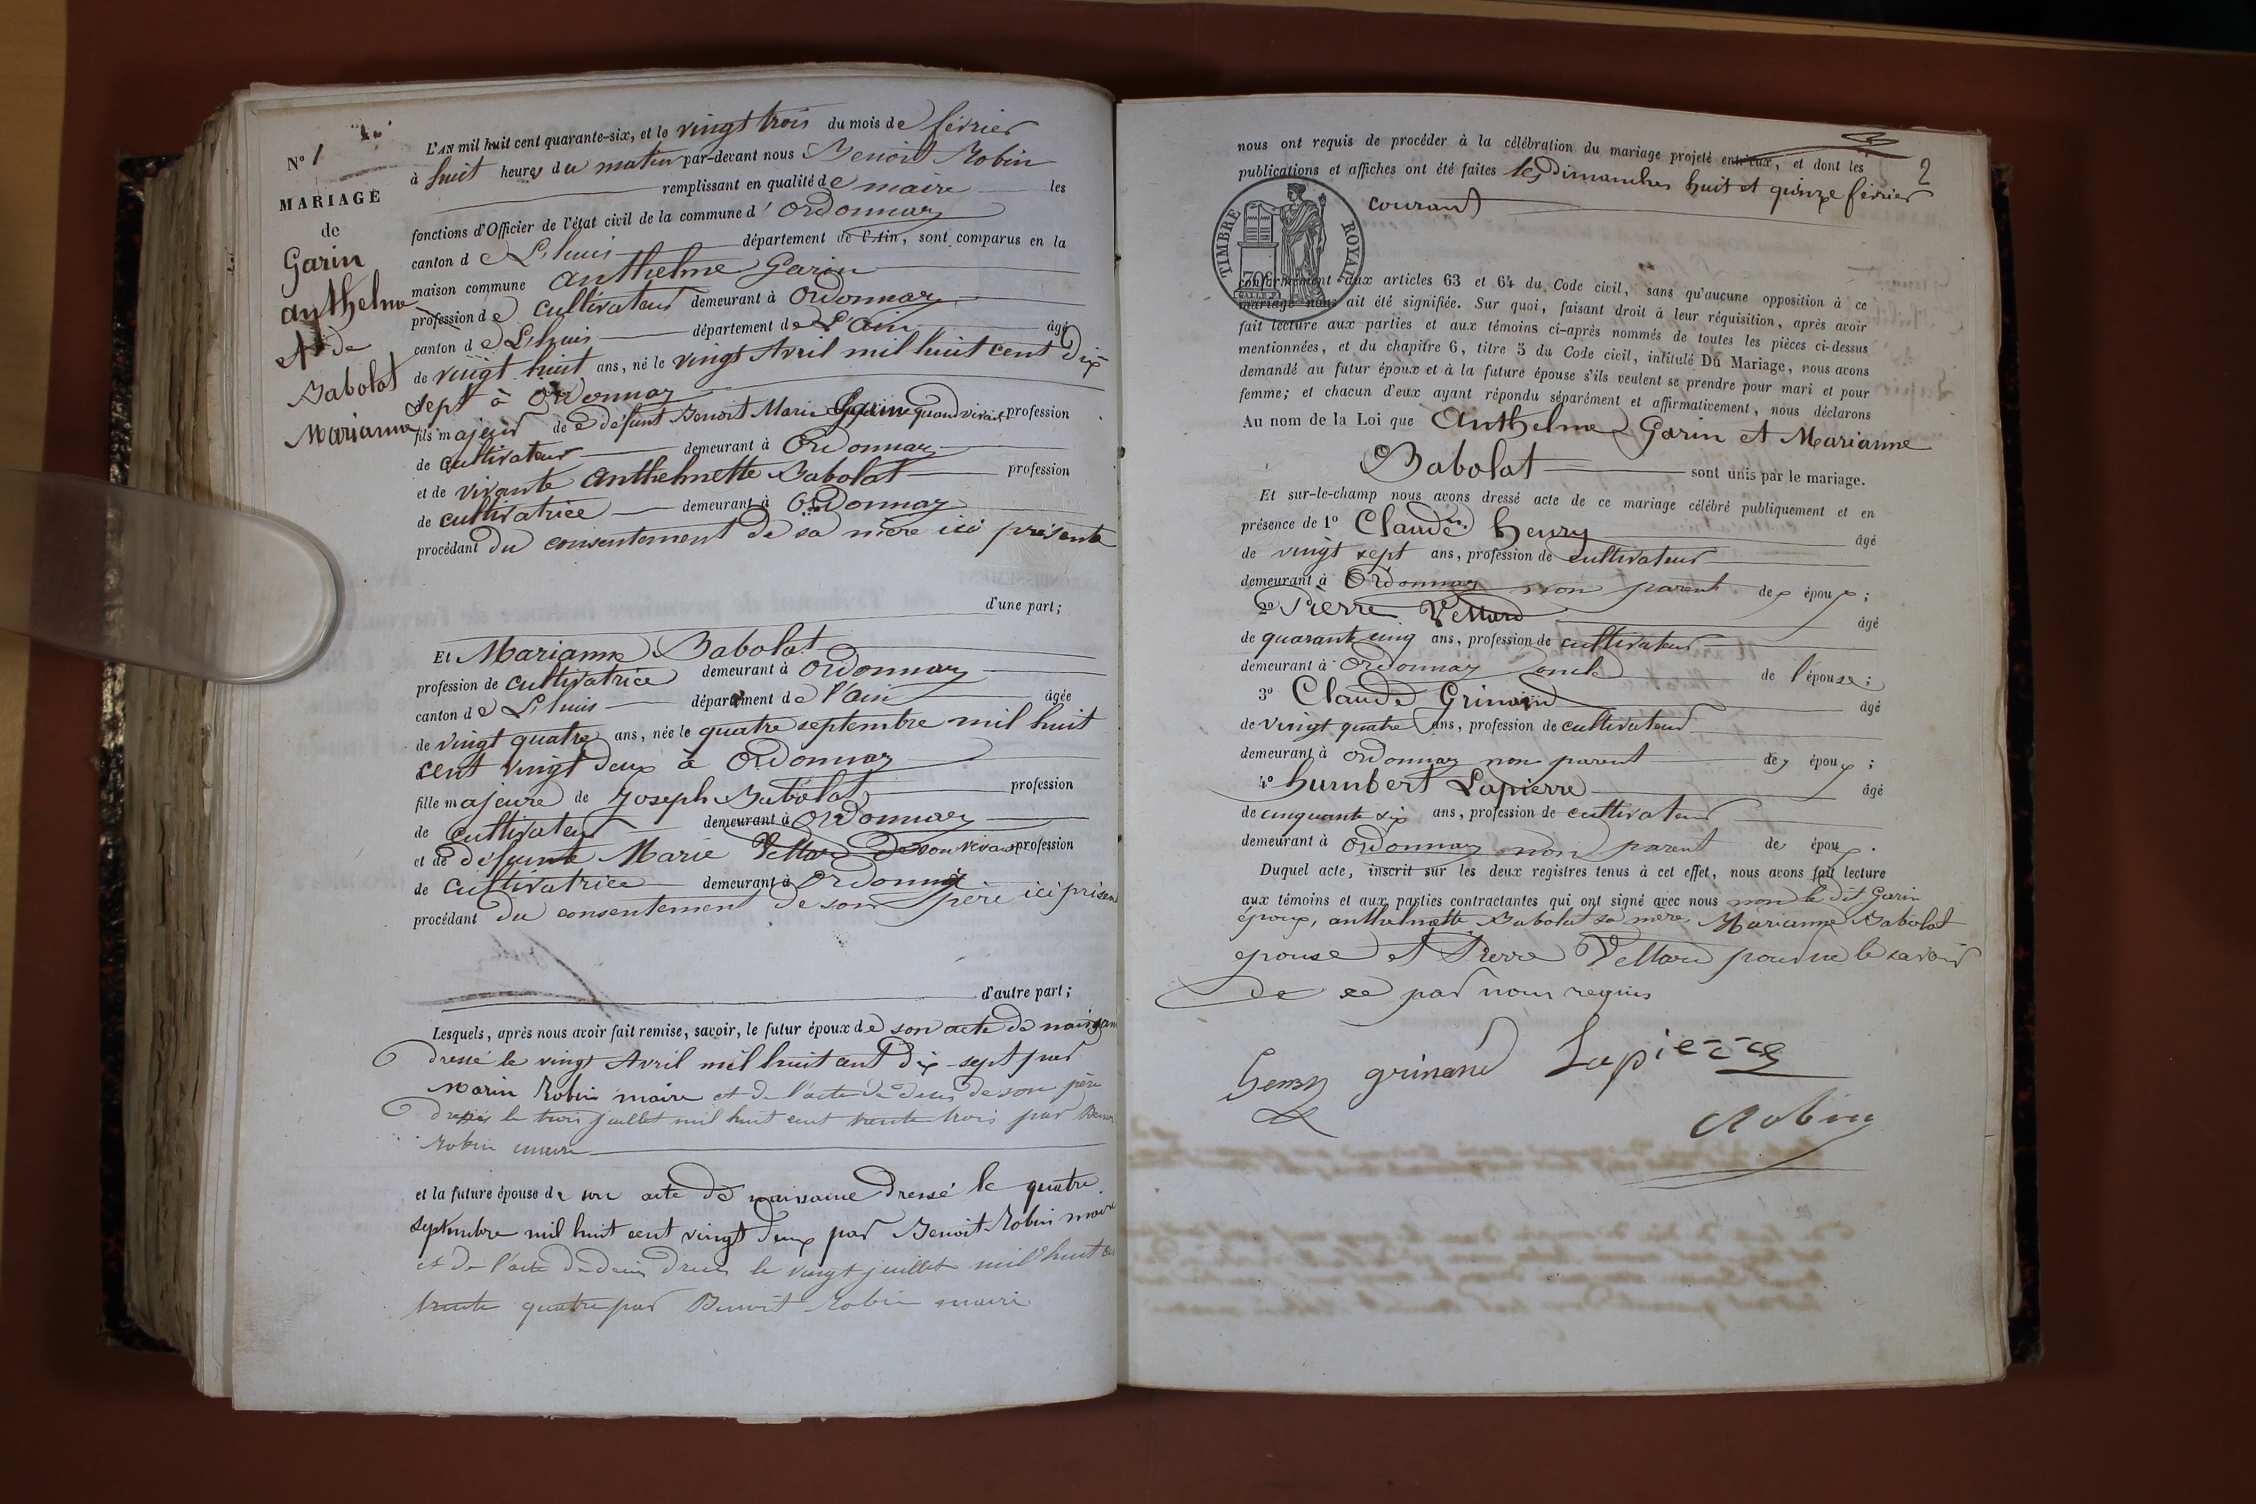 N° 1
MARIAGE
de
Garin
anthelme
et de
Babolat
Marianne
L'AN mil huit cent quarante-six, et le vingt trois du mois de février
à huit heures du matin par-devant nous Benoit Robin
remplissant en qualité de maire les
fonctions d'Officier de l'état civil de la commune d' Ordonnaz
canton de Lhuis département de l'Ain, sont comparus en la
maison commune anthelme Garin
profession de cultivateur demeurant à Ordonnaz
canton de Lhuis département de L'ain âgé
de vingt huit ans, né le vingt Avril mil huit cent dix
sept à Ordonnaz
fils majeur de défunt Benoit Marie Garin quand vivait profession
de cultivateur demeurant à Ordonnaz
et de vivante anthelmette Babolat profession
de cultivatrice demeurant à Ordonnaz
procédant du consentement de sa mère ici présente
d'une part;
Et Marianne Babolat
profession de cultivatrice demeurant à Ordonnaz
canton de Lhuis département de l'ain âgée
de vingt quatre ans, née le quatre septembre mil huit
cent vingt deux à Ordonnaz
fille majeure de Joseph Babolat profession
de cultivateur demeurant à Ordonnaz
et de défunte Marie Vettard de son vivant profession
de cultivatrice demeurant à Ordonnaz
procédant du consentement de son père ici présent
d'autre part;
Lesquels, après nous avoir fait remise, savoir, le futur époux de son acte de naissan
dressé le vingt Avril mil huit cent dix-sept par
Marin Robin maire et de l'acte de décès de son père
dressé le trois juillet mil huit cent trente trois par Benoit
Robin maire
et la future épouse de son acte de naissance dressé le quatre
septembre mil huit cent vingt deux par Benoit Robin maire
et de l'acte de décès dressé le vingt juillet mil huit cent
trente quatre par Benoit Robin maire
2
nous ont requis de procéder à la célébration du mariage projeté entr'eux, et dont les
publications et affiches ont été faites les dimanches huit et quinze février
courant
TIMBRE ROYAL
70c
conformément aux articles 63 et 64 du Code civil, sans qu'aucune opposition à ce
mariage nous ait été signifiée. Sur quoi, faisant droit à leur réquisition, après avoir
fait lecture aux parties et aux témoins ci-après nommés de toutes les pièces ci-dessus
mentionnées, et du chapitre 6, titre 5 du Code civil, intitulé Du Mariage, nous avons
demandé au futur époux et à la future épouse s'ils veulent se prendre pour mari et pour
femme; et chacun d'eux ayant répondu séparément et affirmativement, nous déclarons
Au nom de la Loi que Anthelme Garin et Marianne
Babolat sont unis par le mariage.
Et sur-le-champ nous avons dressé acte de ce mariage célébré publiquement et en
présence de 1° Claude Henry âgé
de vingt sept ans, profession de cultivateur
demeurant à Ordonnaz non parent des époux;
2° Pierre Vettard âgé
de quarante cinq ans, profession de cultivateur
demeurant à Ordonnaz oncle de l'épouse;
3° Claude Grinand âgé
de vingt quatre ans, profession de cultivateur
demeurant à Ordonnaz non parent des époux;
4° humbert Lapierre âgé
de cinquante six ans, profession de cultivateur
demeurant à Ordonnaz non parent des époux.
Duquel acte, inscrit sur les deux registres tenus à cet effet, nous avons fait lecture
aux témoins et aux parties contractantes qui ont signé avec nous non le dit Garin
époux, anthelmette Babolat sa mère, Marianne Babolat
épouse et Pierre Vettard pour ne le savoir
de ce par nous requis
henry grinand Lapierre
Robin